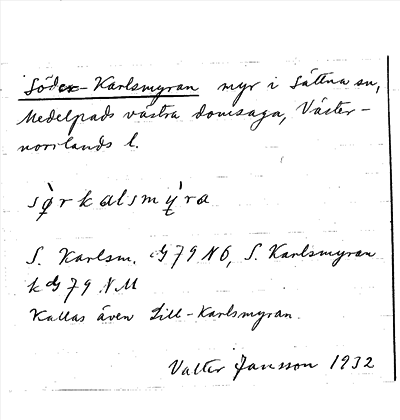 Söder-Karlsmyran myr i Sättna sn,
Medelpads västra domsaga, Väster-
norrlands l.
sø̀rkalsmỳra
S. Karlsm. G79NÖ, S. Karlsmyran
k G79 NM
Kallas även Lill-Karlsmyran.
Valter Jansson 1932